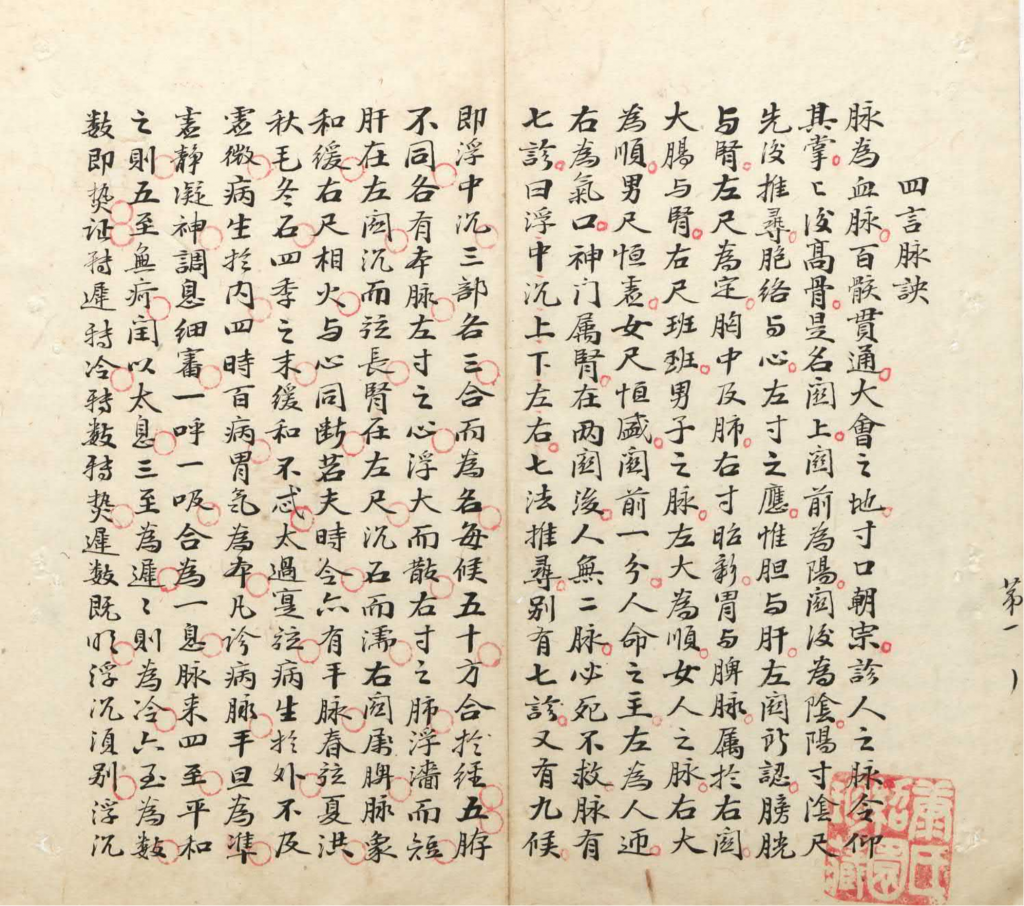 四言脉訣
脉為血脉百骸貫通大會之地寸口朝宗診人之脉令仰
其掌〻後高骨是名関上関前為陽関後為陰陽寸陰尺
先後推尋胞絡与心左寸之應惟胆与肝左関所認膀胱
与腎左尺為定胸中及肺右寸昭彰胃与脾脉属於右関
大腸与腎右尺班班男子之脉左大為順女人之脉右大
為順男尺恒虗女尺恒盛関前一分人命之主左為人迎
右為氣口神门属腎在两関後人無二脉必死不救脉有
七診曰浮中沉上下左右七法推尋别有七診又有九候
即浮中沉三部各三合而為名每候五十方合扵經五脏
不同各有本脉左寸之心浮大而散右寸之肺浮濇而短
肝在左関沉而弦長腎在左尺沉石而濡右関属脾脉象
和緩右尺相火与心同断若夫時令亦有平脉春弦夏洪
秋毛冬石四季之末緩和不忒太過寔弦病生扵外不及
虗微病生扵内四時百病胃氣為本凡診病脉平旦為準
虗静凝神調息细審一呼一吸合為一息脉来四至平和
之則五至無疴闰以太息三至為遲〻則為冷六至為數
數即热证轉遲轉冷轉數轉热遲數既明浮沉須别浮沉
第一
董氏
園
藏